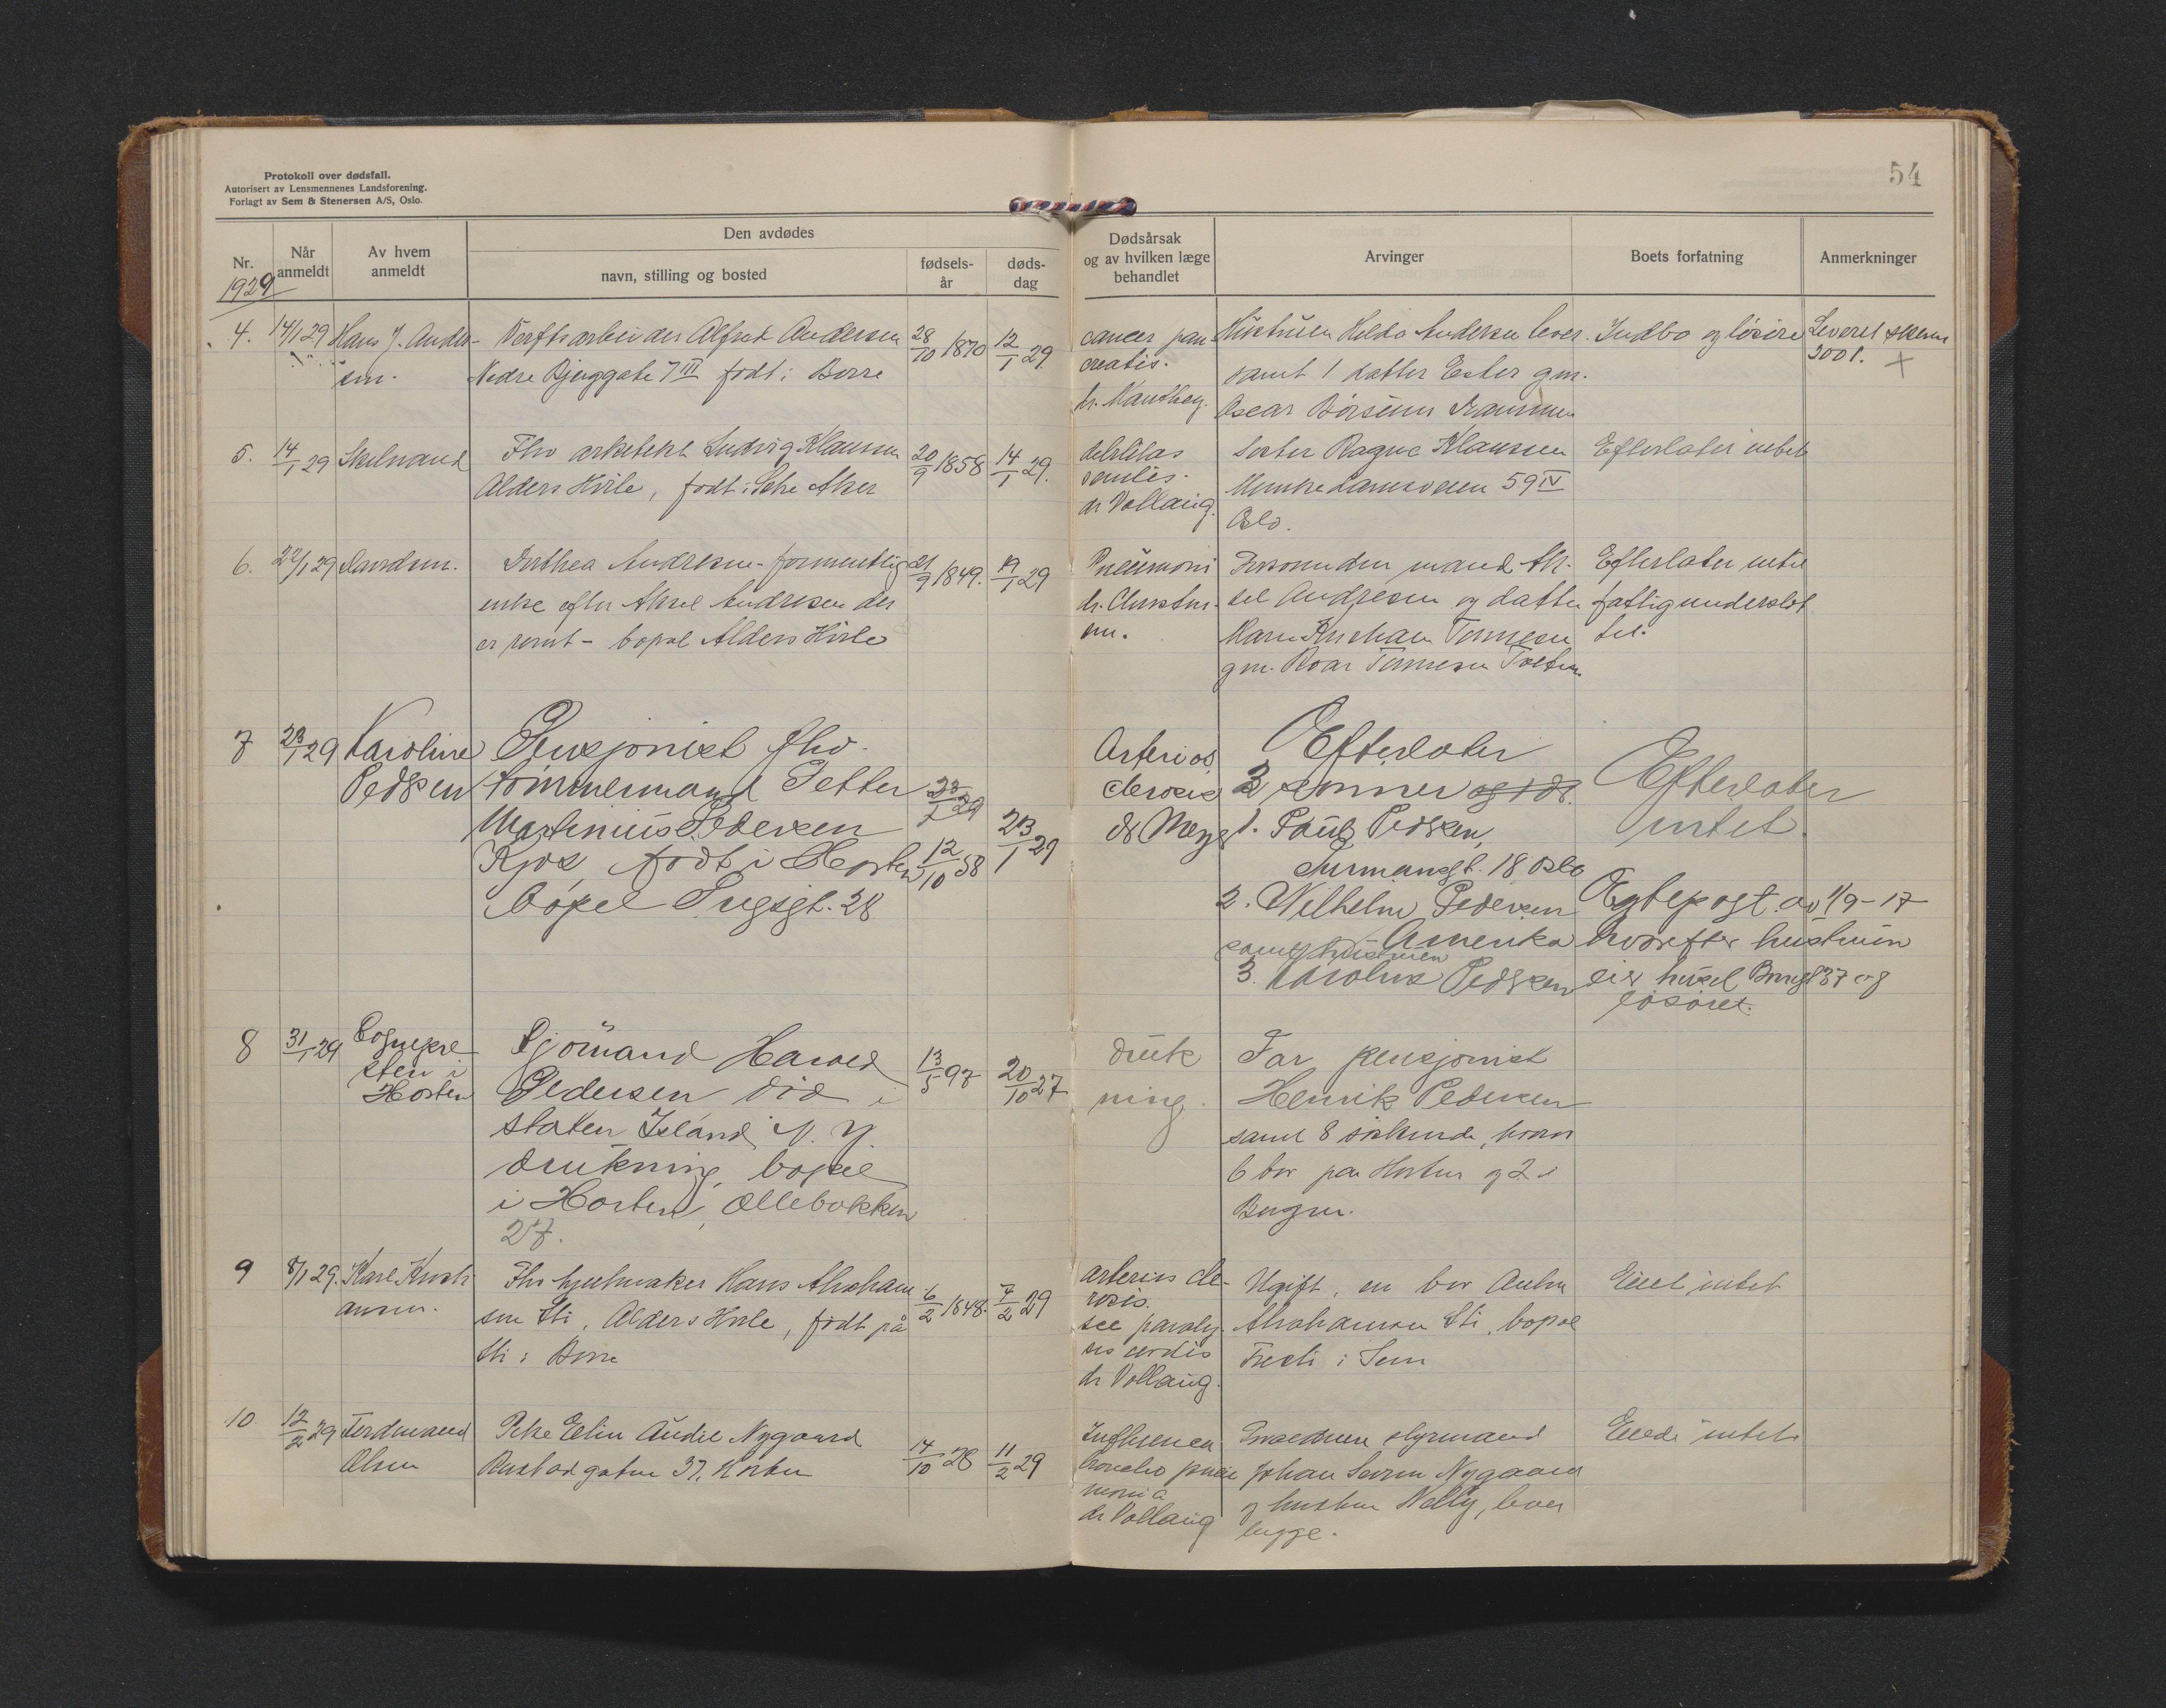 Protokoll over dødsfall.
Autorisert av Lensmennenes Landsforening.
Forlagt av Sem & Stenersen A/S, Oslo.
54
Nr.
1929
Når
anmeldt
Av hvem
anmeldt
Den avdødes
navn, stilling og bosted
fødsels-
år
døds-
dag
Dødsårsak
og av hvilken læge
behandlet
Arvinger
Boets forfatning
Anmerkninger
4. 14/1 29 Hans J. Ander-
sen.
Verftsarbeider Alfred Andersen
Nedre Bjerggate 7 III født i Borre
28/10 1870 12/1 29
cancer pan
creatis.
dr.
Hustruen Helda Andersen lever.
samt 1 datter Ester gm.
Oscar Drammen
Indbo og løsøre
Leveret skema
300 f. +
5. 14/1 29
Fhv arkitekt Ludvig Klausen
Alders Hvile, født i Aker
20/9 1858 14/1 29.
debilitas
senilis.
dr Vollaug.
Søster Ragna Klausen
59 IV
Oslo.
Efterlater intet
6. 22/1 29
Andresen - formentlig
enke efter Aksel Andresen der
er rømt - bopæl Alders Hvile
21/9 1849. 19/1 29
Pneumoni
dr. Christens-
en.
mand Ak-
sel Andresen og datter
gm. Roar
Efterlater intet
fattigunderstøt
tet.
7 23/1 29 Karoline
Pedersen
Pensjonist fhv.
tømmermand Petter
Martinius Pedersen
Kjos, født i Horsten
bopel 28
23/1 29
12/10 58
23/1 29
Arterios
clerosis
dr
Efterlater
3 sønner og 1 dt.
1. Paul Pedersen,
18 Oslo
2. Wilhelm Pedersen
Amerika
samt hustruen
3. Karoline Pedersen
Efterlater
intet.
Egtepagt av 1/9-17
hvorefter hustruen
eier huset 37 og
løsøret.
8 31/1 29 Sogneprе
sten i
Horten
Sjømand Harald
Pedersen død i
Staten Island N. Y.
drukning, bopæl
i Horten, Øllebakken
27.
13/5 97 20/10 27
druk
ning.
Far pensjonist
Henrik Pedersen
samt 8 søskende, hvorav
6 bor paa Horten og 2 i
Bergen.
9 8/1 29. Karl Kristi
ansen.
Fhv hjulmaker Hans Abraham
sen Sti, Alders Hvile, født på
Sti i Borre
6/2 1848. 7/2 29
arterios cle-
rosis.
paraly
sis cordis
dr Vollaug.
Ugift, en bror Anton
Abrahamsen Sti, bopæl
i Sem
Eiet intet
10. 12/2 29 Ferdinand
Olsen
Pike Elin Audil Nygaard
37, Horten
14/10 28 11/2 29
Influenca
broncho pneu
monia
dr Vollaug
Forældrene styrmand
Johan Nygaard
og hustru Nelly, lever
begge.
Eiede intet